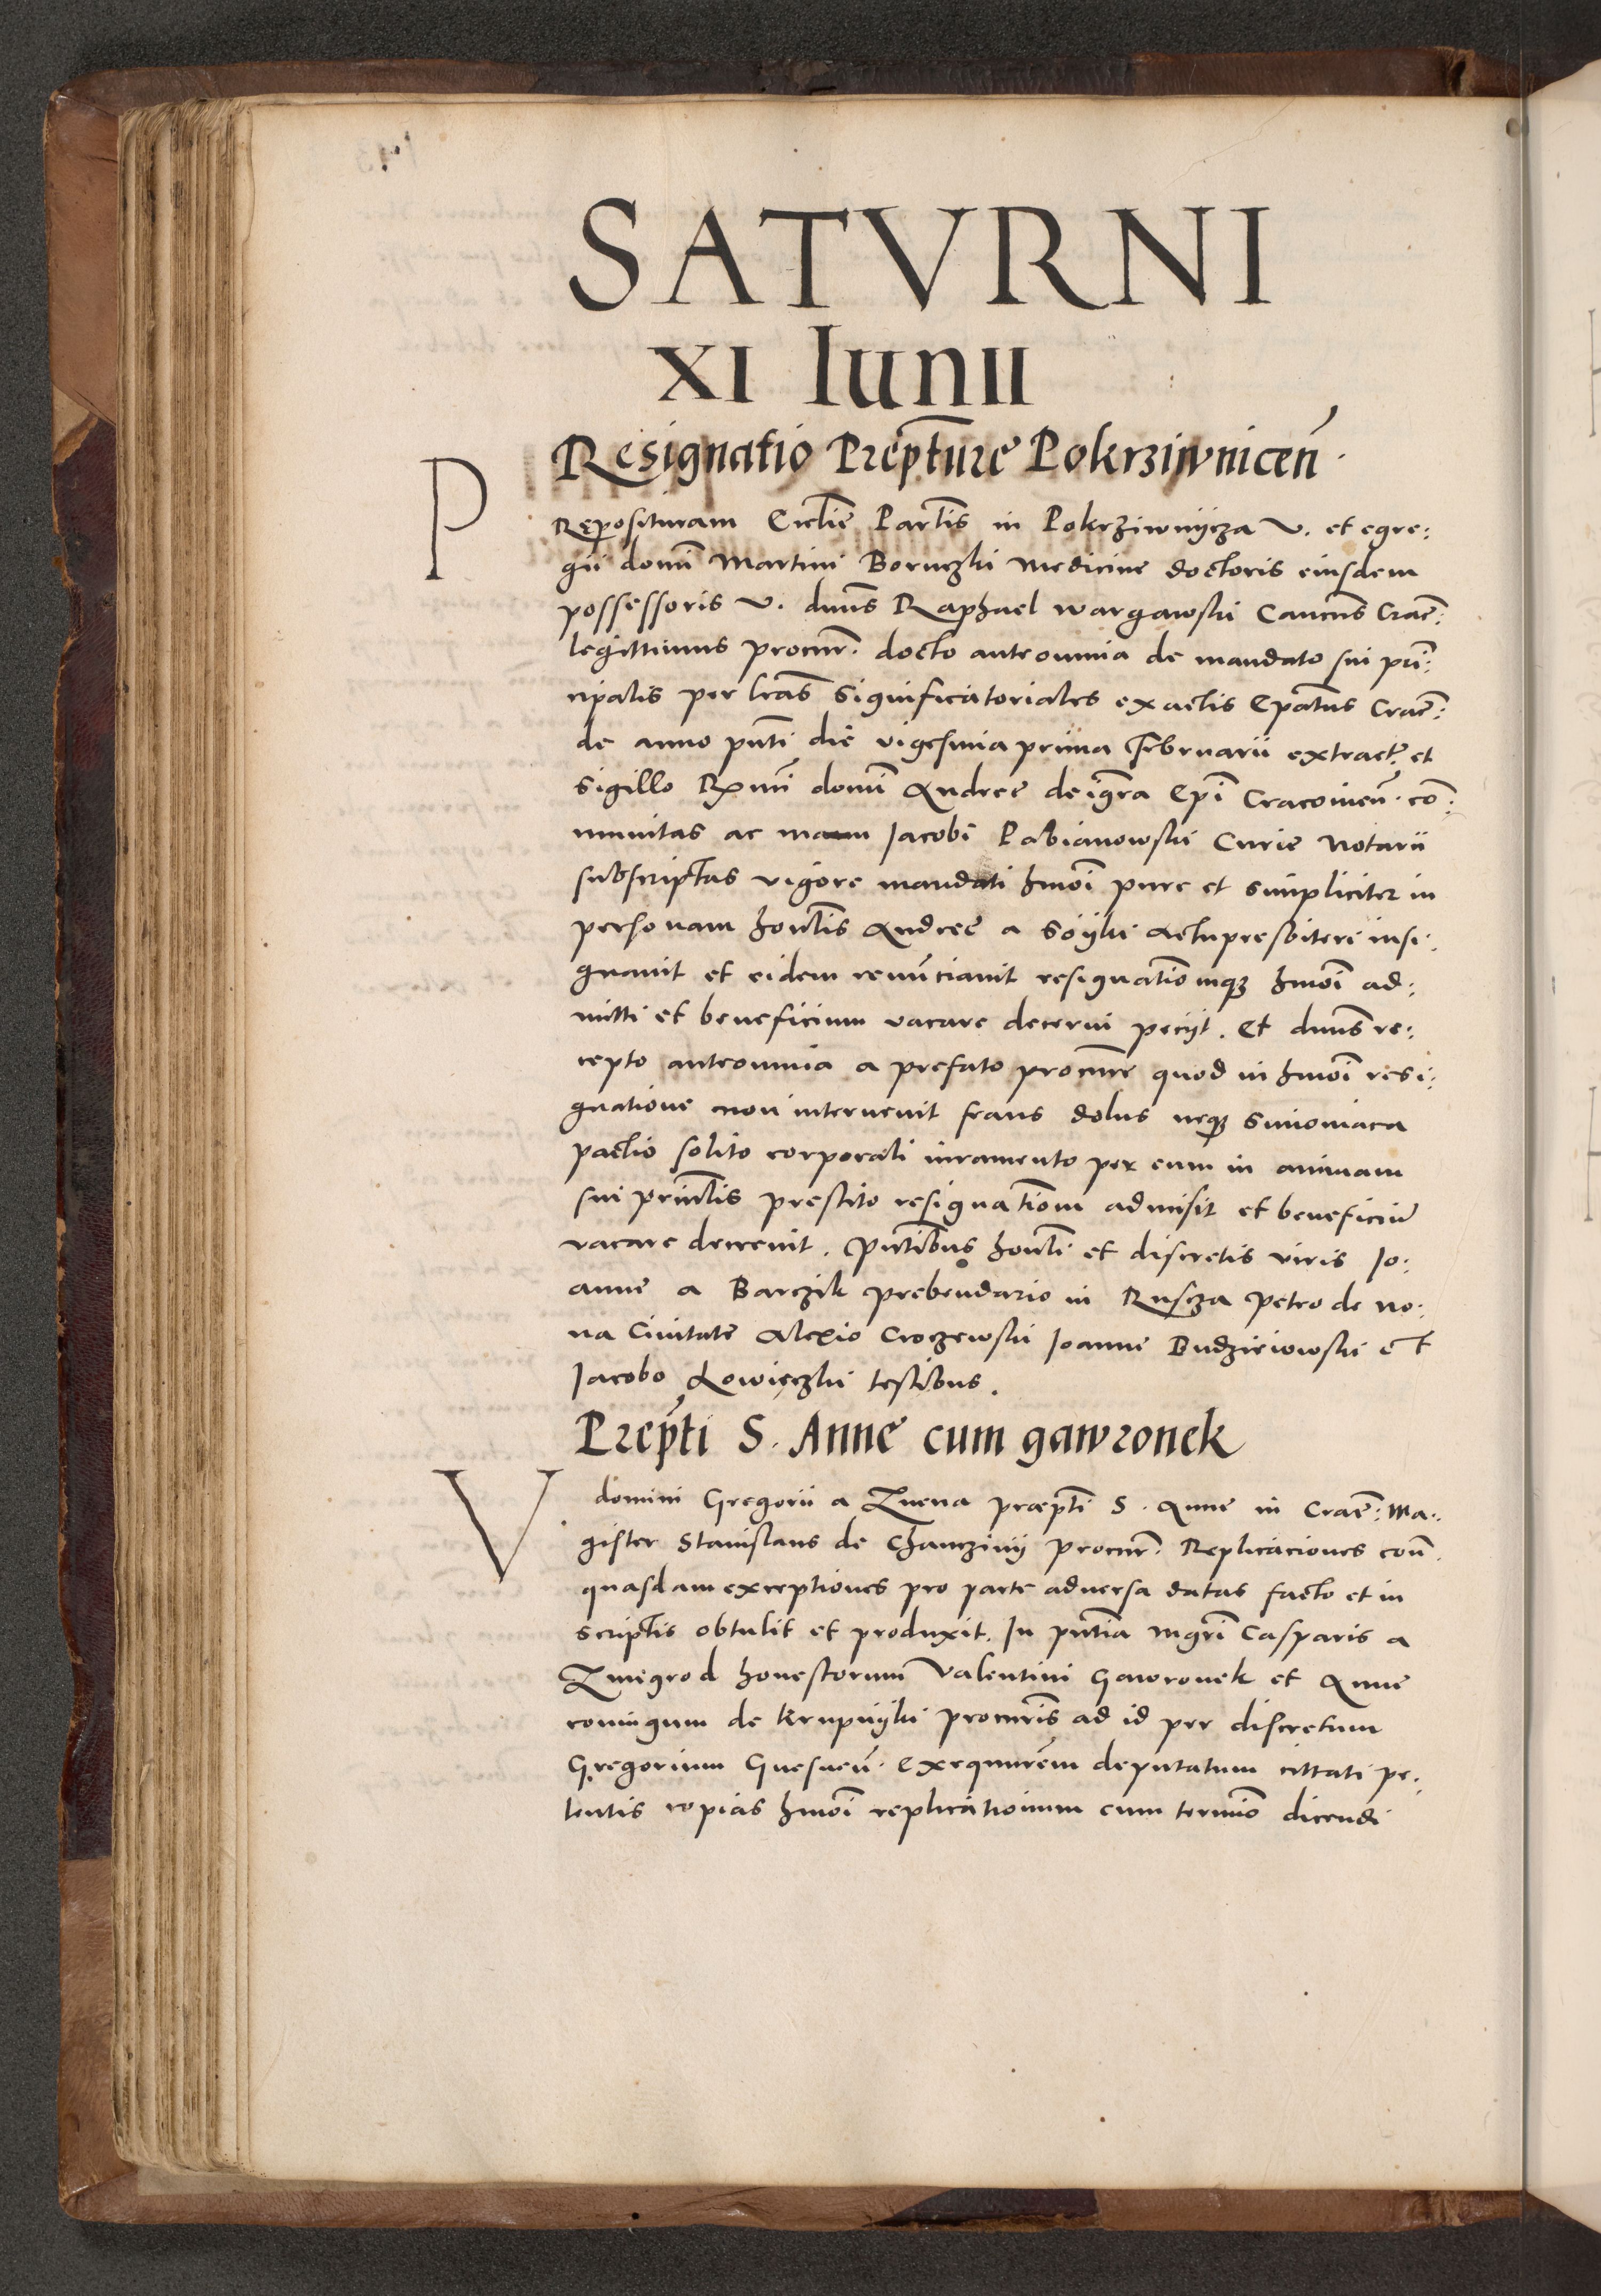 SATVRNI
XI Iunii
Resignatio Prep̄ture Pokrziwnicen̄
P Reposituram Ecclie Parlis in Pokrziwnycza V. et egre:
gii domi Martini Boruczki Medicine doctoris eiusdem
possessoris V. dnus Raphael Wargawski Cancus Crac:
legittimus procur. docto anteomnia de mandato sui prī:
cipalis per lras significatoriales ex actis Epatus Crac:
de anno pnti die vigesima prima Februarii extract. et
sigillo Rmi domi Andree dei gra Epi Cracovien. co:
munitas ac manu Jacobi Pabianowski Curie Notarii
subscriptas vigore mandati hmoi pure et simpliciter in
personam honlis Andree a Soyki Actupresbiteri insi:
gnavit et eidem renunciavit resignationemque hmoi ad:
mitti et beneficium vacare decerni peciit. Et dnus re:
cepto anteomnia a prefato procure quod in hmoi resi:
gnatione non intervenit fraus dolus neque simoniaca
pactio solito corporali iuramento per eum in animam
sui princlis prestito resignationem admisit et beneficiū
vacare decrevit. Pntibus honli et discretis viris Jo:
anne a Barczik prebendario in Ruscza Petro de No:
va Civitate Alexio Croczewski Joanne Budzieiowski et
Jacobo Lowięczki testibus.
Prep̄ti S. Anne cum gawronek
V. domini Gregorii a Zuena præpti S. Anne in Crac: Ma:
gister Stanislaus de Chancziny procur. Replicaciones con
quasdam exceptiones pro parte adversa datas facto et in
scriptis obtulit et produxit. In pntia mgri Casparis a
Zmegrod honestorum Valentini Gawronek et Anne
coniugum de Krupnyki procuris ad id per discretum
Gregorium Gnesnen. Exequurem deputatum cittati pe:
tentis copias hmoi replicationum cum termio dicendi